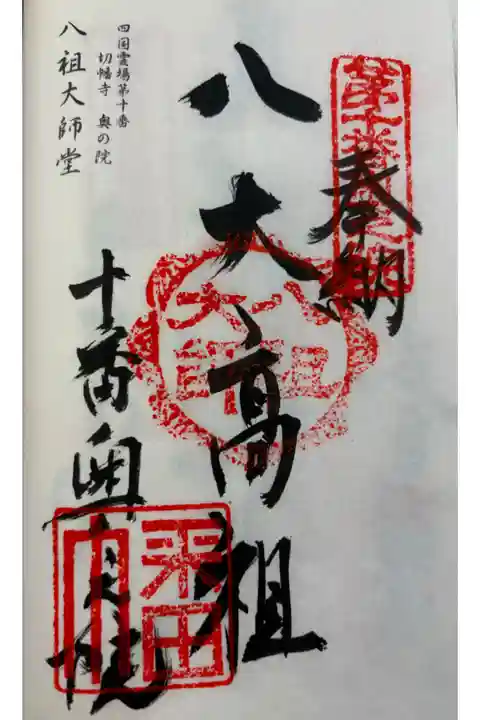 奉納
八大高祖
十番奥之院
八祖大師
四国霊場第十番
切幡寺 奥の院
八祖大師堂